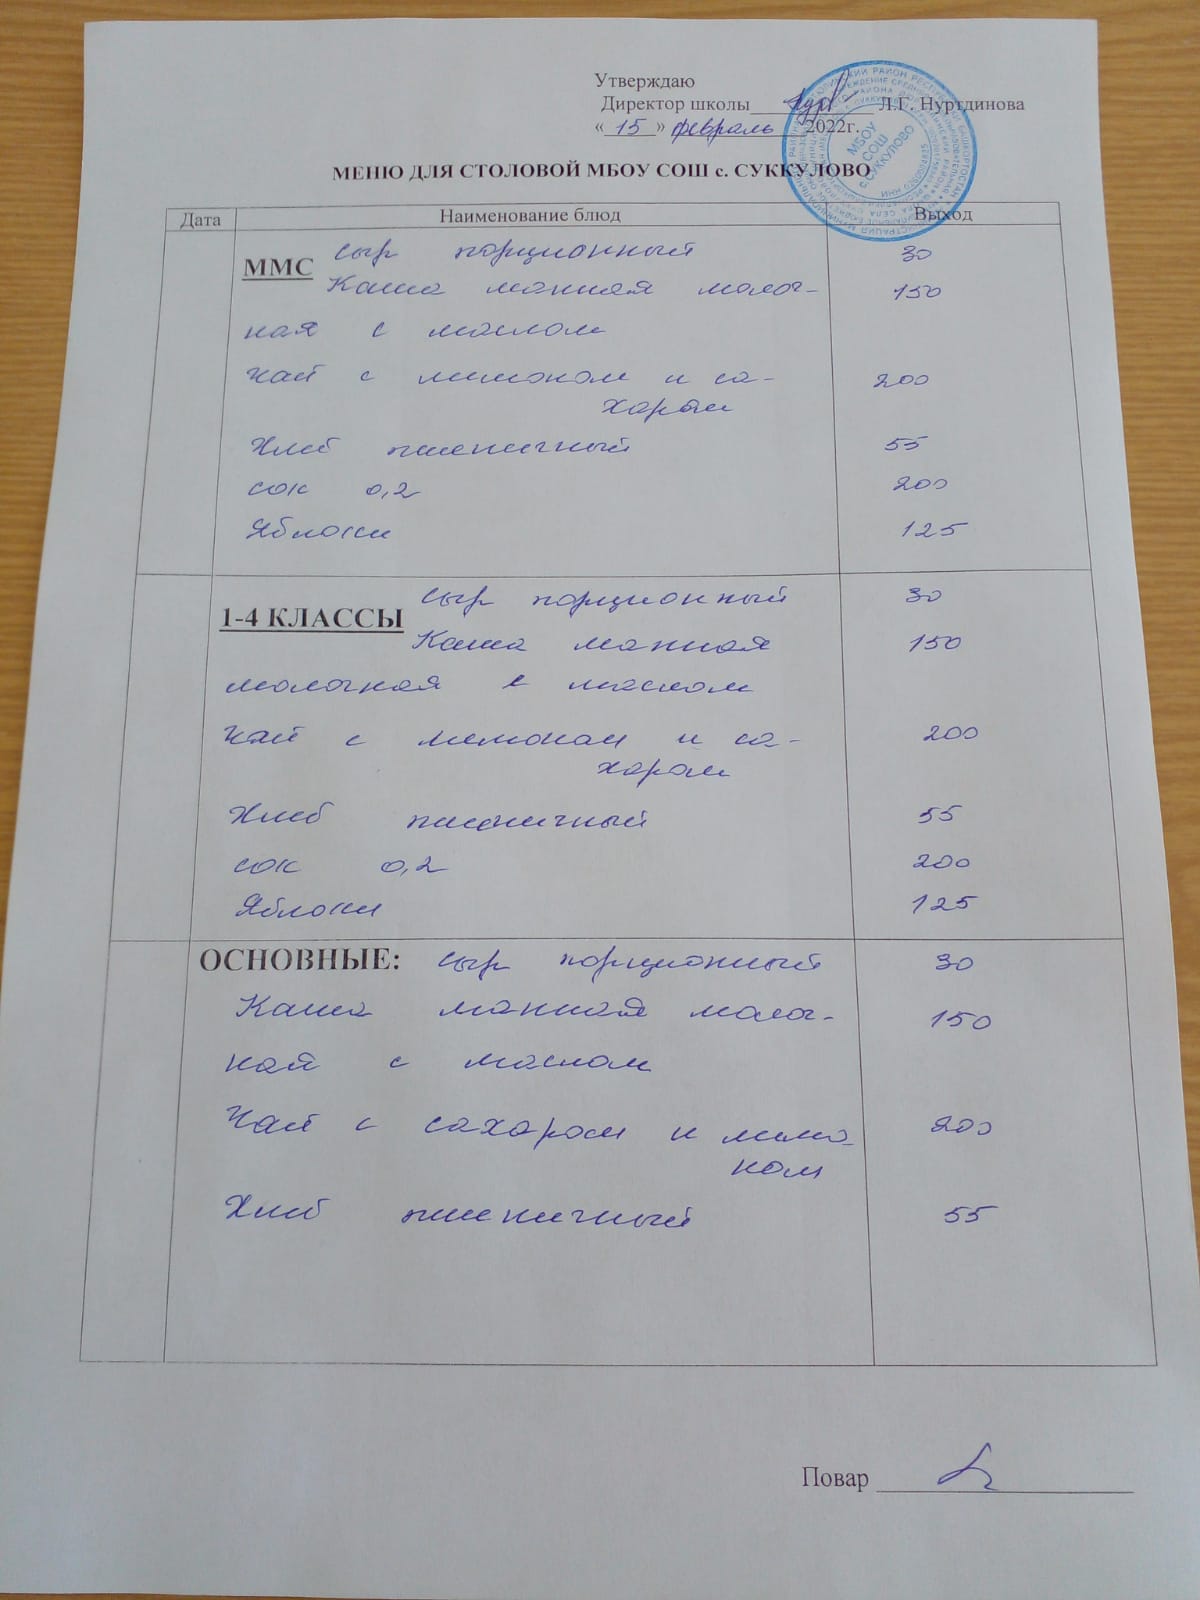 Утверждаю
Директор школы Л.Г. Нуртдинова
« 15 » февраль 2022г.
МБОУ
СОШ
с.СУККУЛОВО
МЕНЮ ДЛЯ СТОЛОВОЙ МБОУ СОШ с. СУККУЛОВО
Дата Наименование блюд Выход
ММС сыр порционный 30
Каша манная молоч- 150
ная с маслом
Чай с лимоном и са- 200
харом
Хлеб пшеничный 55
сок 0,2 200
Яблоки 125
1-4 КЛАССЫ сыр порционный 30
Каша манная 150
молочная с маслом
Чай с лимоном и са- 200
харом
Хлеб пшеничный 55
сок 0,2 200
Яблоки 125
ОСНОВНЫЕ: сыр порционный 30
Каша манная молоч- 150
ная с маслом
Чай с сахаром и лимо- 200
ном
Хлеб пшеничный 55
Повар